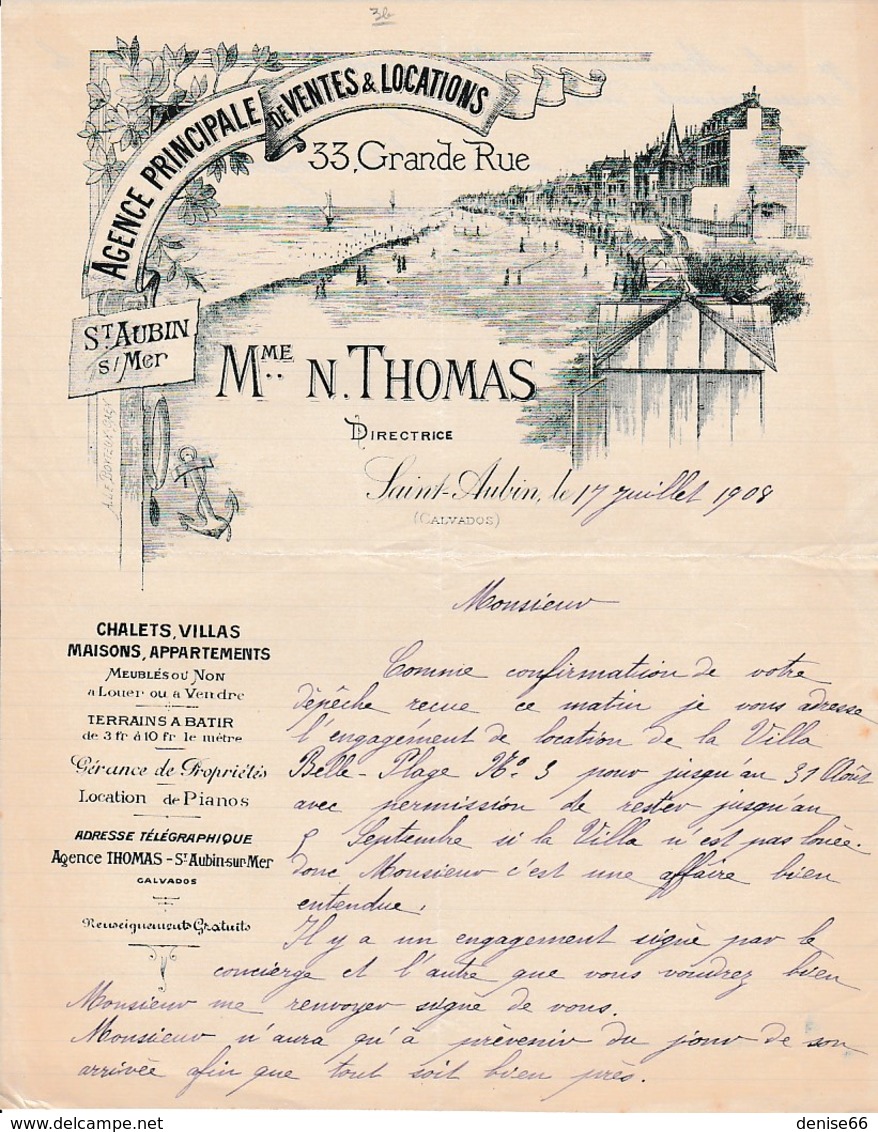 3b
AGENCE PRINCIPALE DE VENTES & LOCATIONS
33, Grande Rue
ST AUBIN
S/ Mer
MME N. THOMAS
DIRECTRICE
Saint-Aubin, le 17 juillet 1908
(CALVADOS)
CHALETS, VILLAS
MAISONS, APPARTEMENTS
MEUBLÉS OU NON
a Louer ou a Vendre
TERRAINS A BATIR
de 3 fr à 10 fr le mètre
Gérance de Propriétés
Location de Pianos
ADRESSE TÉLÉGRAPHIQUE
Agence THOMAS - St Aubin-sur-Mer
CALVADOS
Renseignements Gratuits
Monsieur
Comme confirmation de votre
dépêche recue ce matin je vous adresse
l'engagement de location de la Villa
Belle-Plage No 3 pour jusqu'au 31 Août
avec permission de rester jusqu'au
5 Septembre si la Villa n'est pas louée.
donc Monsieur c'est une affaire bien
entendue.
Il y a un engagement signé par le
concierge et l'autre que vous voudrez bien
Monsieur me renvoyer signé de vous.
Monsieur n'aura qu'à prévenir du jour de son
arrivée afin que tout soit bien près.
denise66